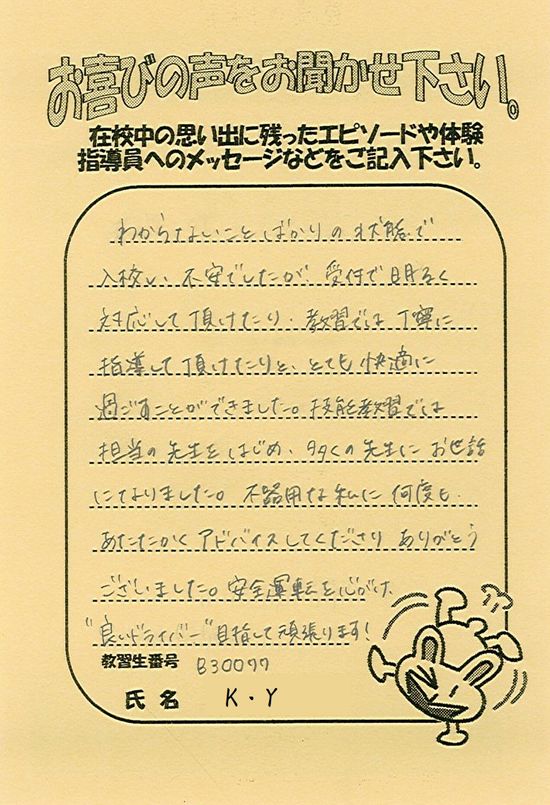 お喜びの声をお聞かせ下さい。
在校中の思い出に残ったエピソードや体験
指導員へのメッセージなどをご記入下さい。
わからないことばかりの状態で
入校し、不安でしたが、受付で明るく
対応して頂けたり、教習では丁寧に
指導して頂けたりと、とても快適に
過ごすことができました。技能教習では
担当の先生をはじめ、多くの先生にお世話
になりました。不器用な私に何度も
あたたかくアドバイスしてくださりありがとう
ございました。安全運転を心がけ、
"良いドライバー"目指して頑張ります!
教習生番号 B30077
氏名 K・Y